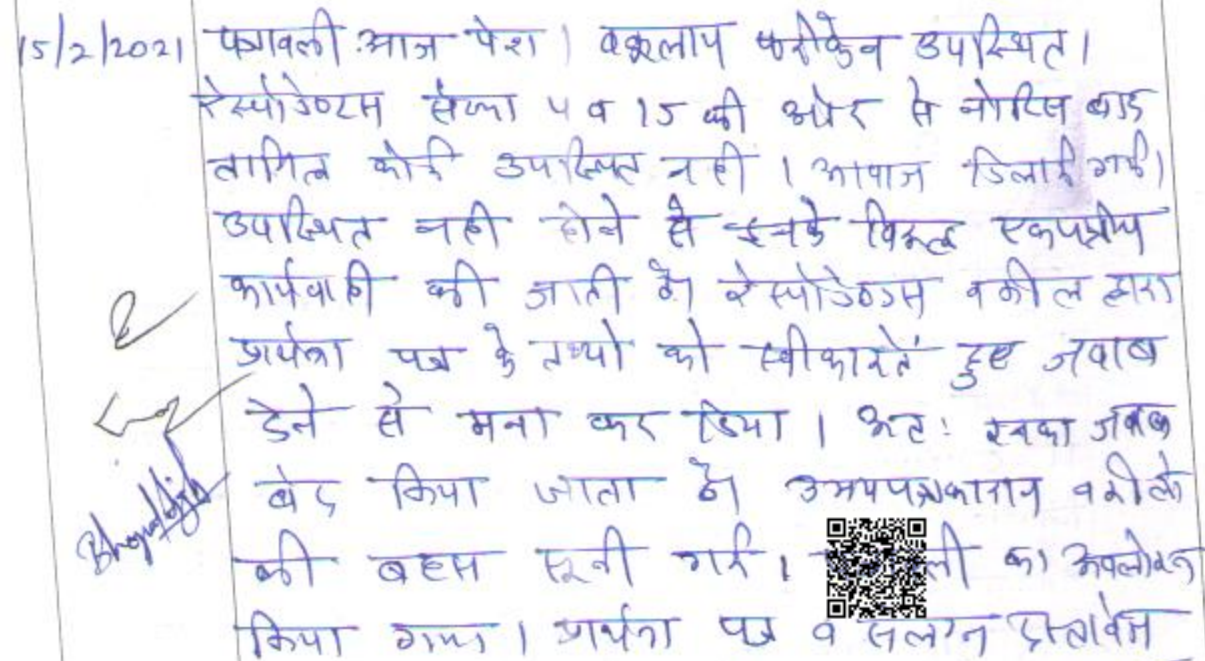 15/2/2021 पत्रावली आज पेश। वकलाय फरीकेन उपस्थित।
रेस्पोडेण्टस संख्या 4 व 15 की ओर से नोटिस बाद
तामिल कोई उपस्थित नही। आवाज दिलाई गई।
उपस्थित नही होने से इनके विरूद्ध एकपक्षीय
कार्यवाही की जाती है। रेस्पोडेण्डस वकील द्वारा
प्रार्थना पत्र के तथ्यो को स्वीकारतें हुए जवाब
देने से मना कर दिया। अतः इनका जवाब
बंद किया जाता है। उभयपक्षकारान वकीलो
की बहस सूनी गई। ली का अवलोकन
किया गया। प्रार्थना पत्र व सलग्न दस्तावेज
Bhagwati